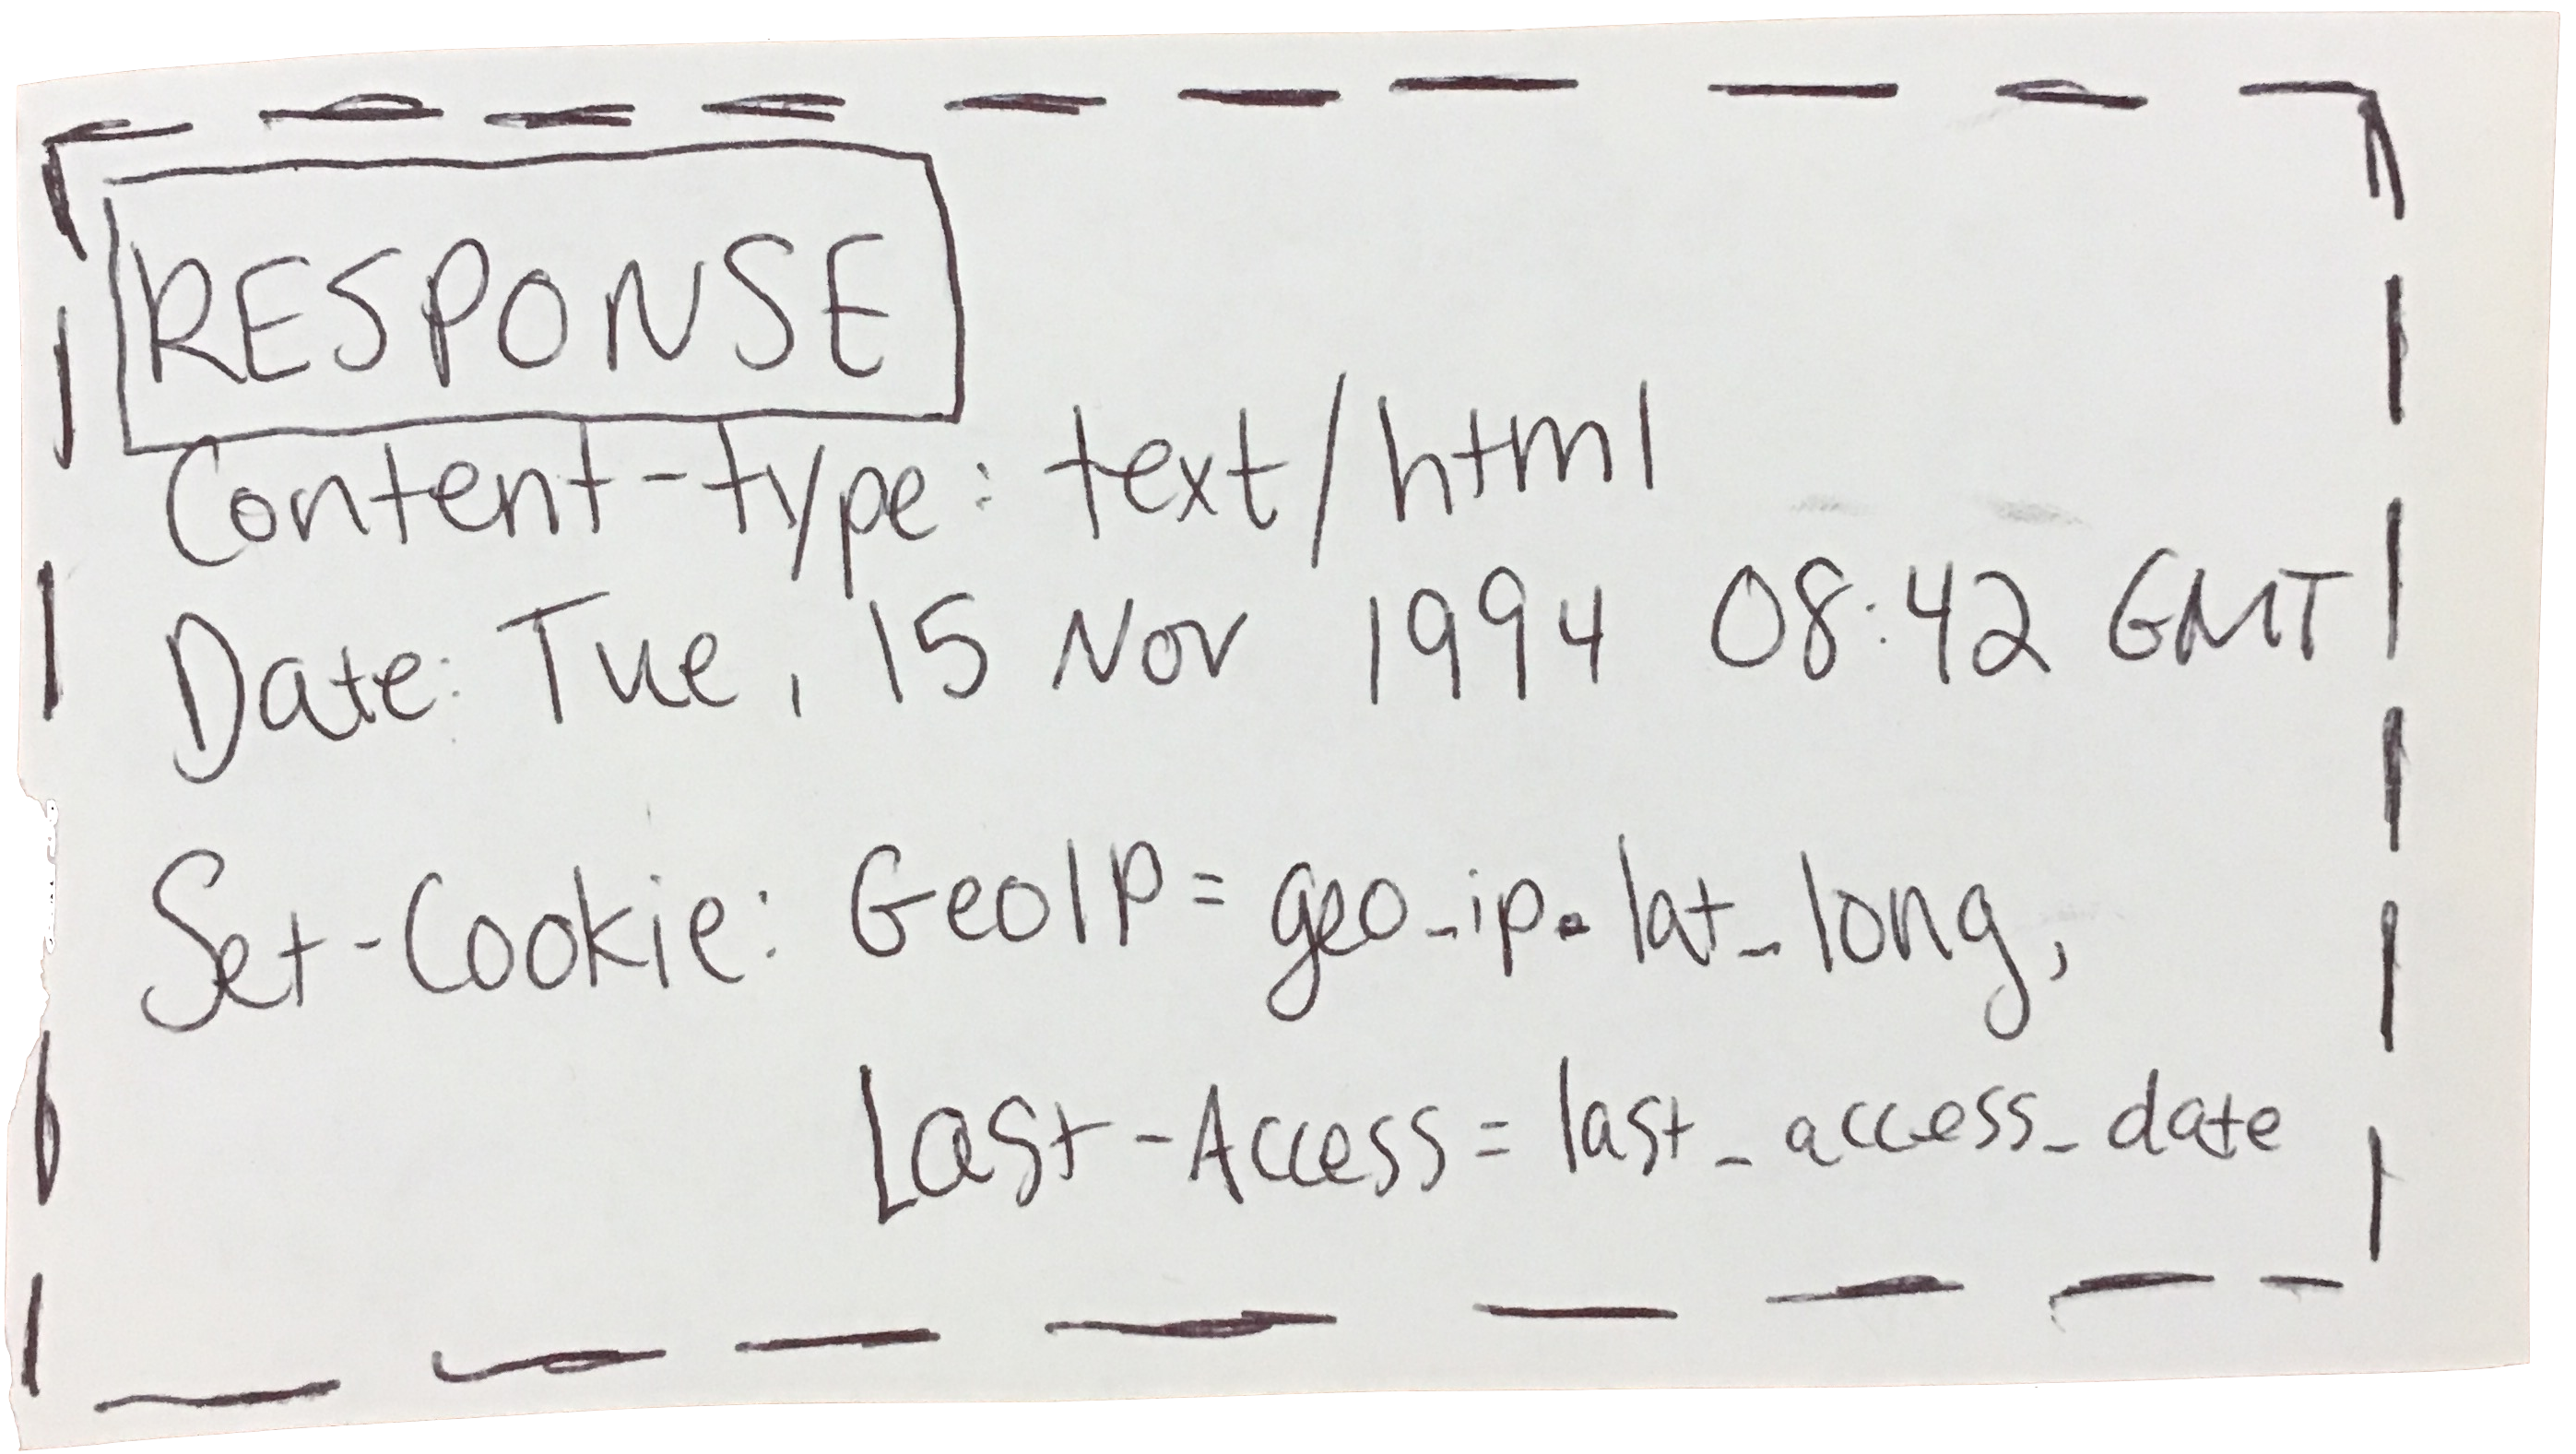 RESPONSE
Content-type: text/html
Date: Tue, 15 Nov 1994 08:42 GMT
Set-Cookie: GeoIP=geo_ip.lat_long,
Last-Access=last_access_date